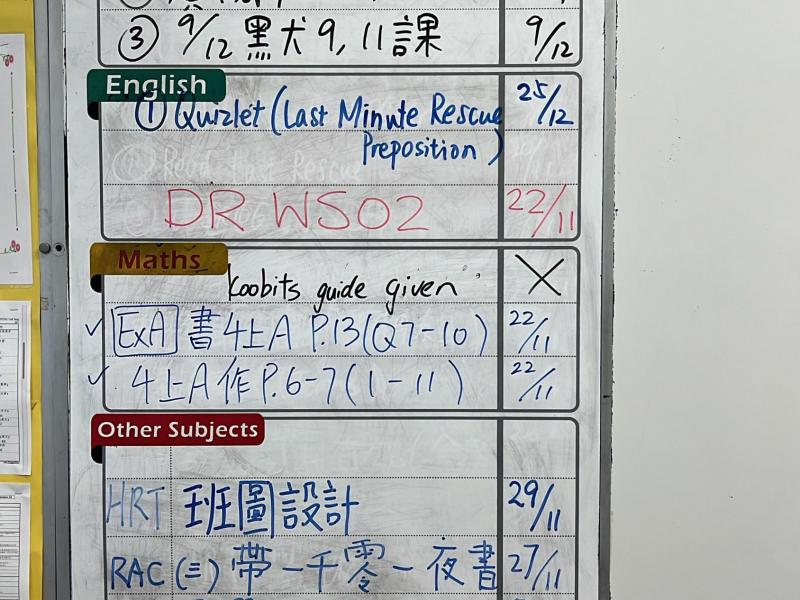 ③ 9/12 黑犬 9, 11 課 9/12
English
① Quizlet (Last Minute Rescue 25/12
Preposition)
DR WS02 22/11
Maths
Koobits guide given X
✓ ExA 書 4上A P.13 (Q7-10) 22/11
✓ 4上A 作 P.6-7 (1-11) 22/11
Other Subjects
HRT 班圖設計 29/11
RAC (三) 帶一千零一夜書 27/11